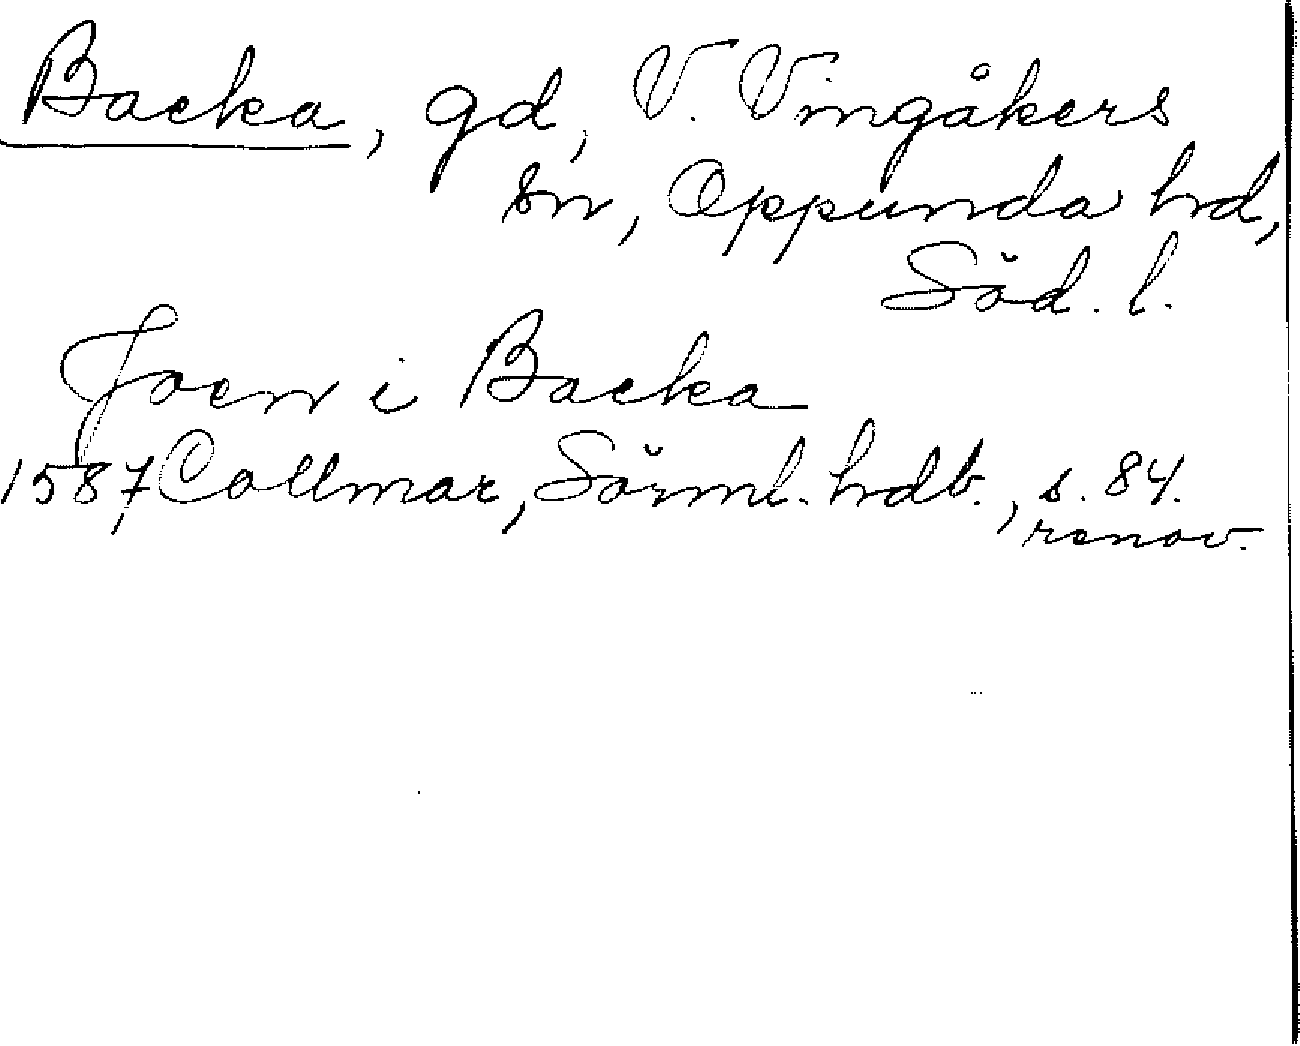 Backa, gd, V. Vingåkers
sn, Oppunda hd,
Söd. l.
Joen i Backa
1587, Collmar, Sörml. hdb., s. 84.
renov.